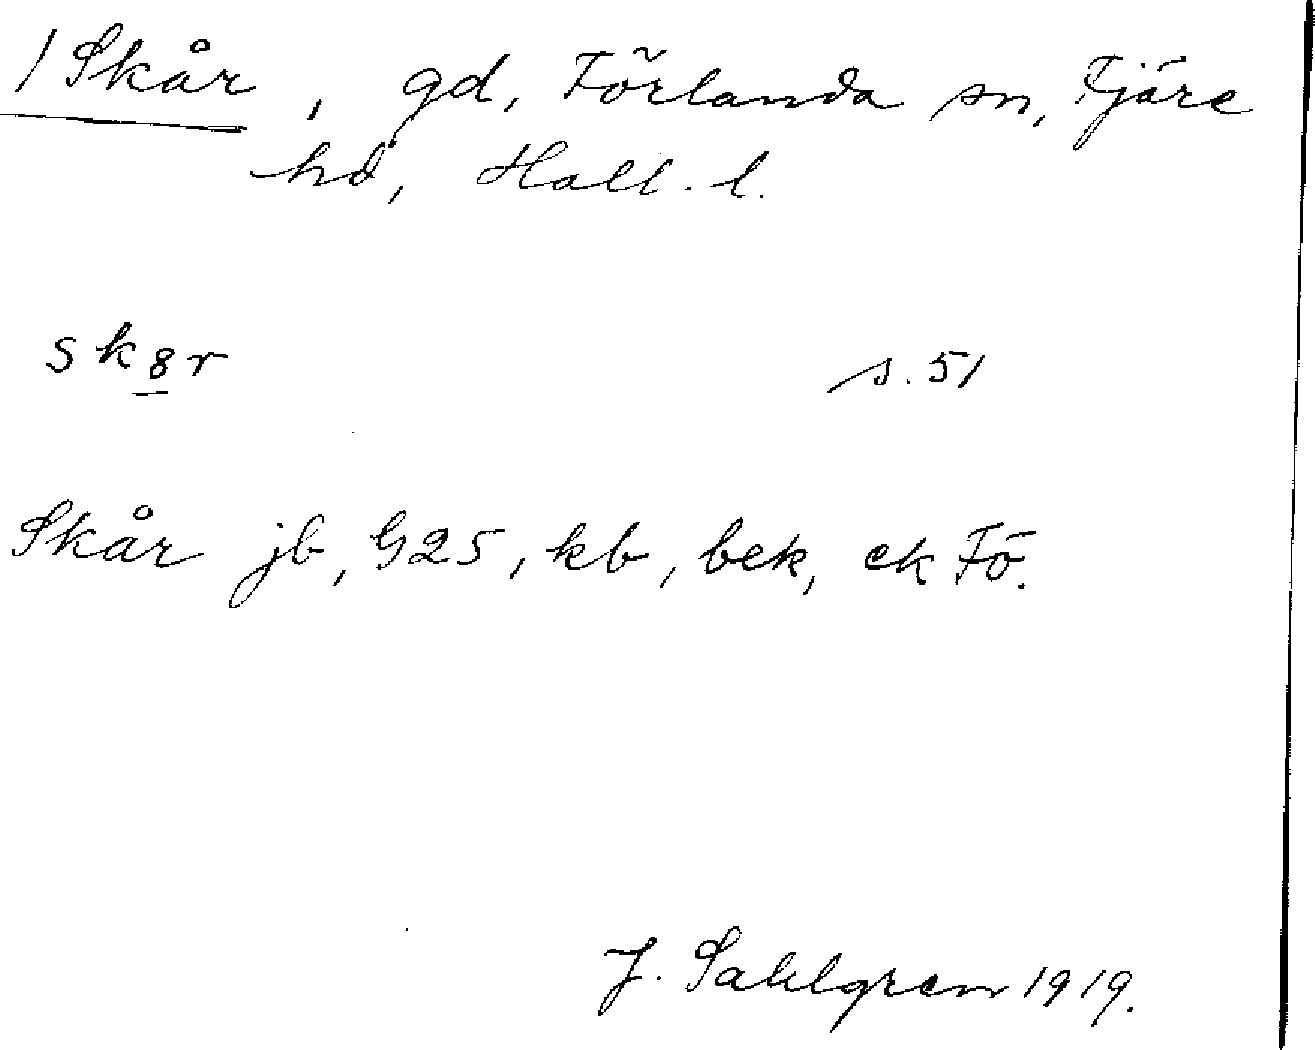 / Skår, gd, Förlanda sn, Fjäre
hd, Hall. l.
sk8r s. 51
Skår jb, G25, kb, bek, ek Fö.
J. Sahlgren 1919.